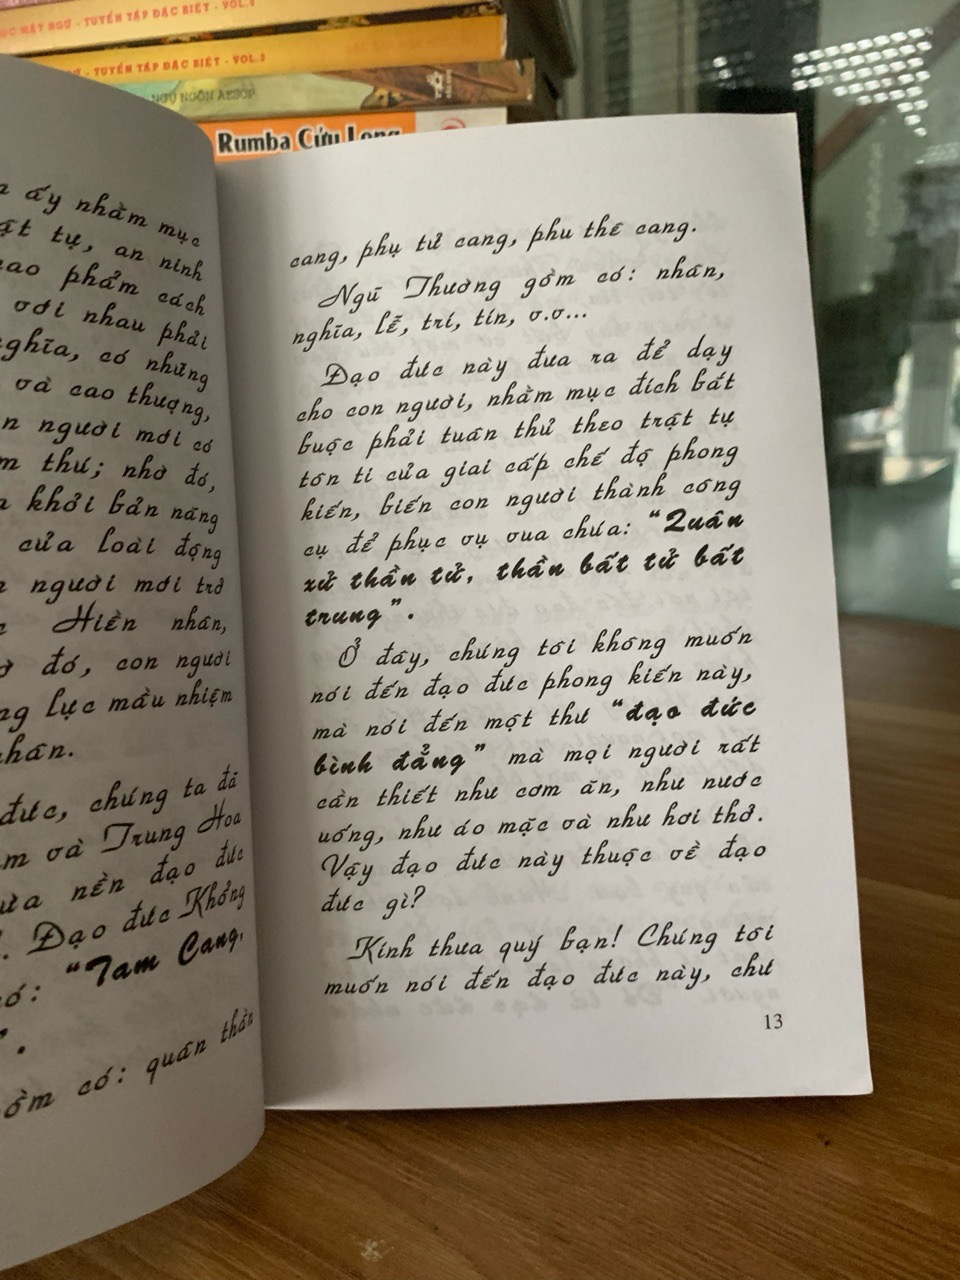 ỌC MẬT NGỮ - TUYỂN TẬP ĐẶC BIỆT - VOL.4
- TUYỂN TẬP ĐẶC BIỆT - VOL.3
NGỤ NGÔN AESOP
Rumba Cửu Long
ấy nhằm mục
tự, an ninh
phẩm cách
với nhau phải
nghĩa, có những
và cao thượng,
người mới có
thú; nhờ đó,
khởi bản năng
của loài động
người mới trở
Hiền nhân,
đó, con người
lực mầu nhiệm
nhân.
đức, chúng ta đã
và Trung Hoa
nền đạo đức
. Đạo đức Khổng
có: "Tam Cang,
".
gồm có: quân thần
cang, phụ tử cang, phu thê cang.
Ngũ Thường gồm có: nhân,
nghĩa, lễ, trí, tín, v.v...
Đạo đức này đưa ra để dạy
cho con người, nhằm mục đích bắt
buộc phải tuân thủ theo trật tự
tôn ti của giai cấp chế độ phong
kiến, biến con người thành công
cụ để phục vụ vua chúa: "Quân
xử thần tử, thần bất tử bất
trung".
Ở đây, chúng tôi không muốn
nói đến đạo đức phong kiến này,
mà nói đến một thứ "đạo đức
bình đẳng" mà mọi người rất
cần thiết như cơm ăn, như nước
uống, như áo mặc và như hơi thở.
Vậy đạo đức này thuộc về đạo
đức gì?
Kính thưa quý bạn! Chúng tôi
muốn nói đến đạo đức này, chứ
13